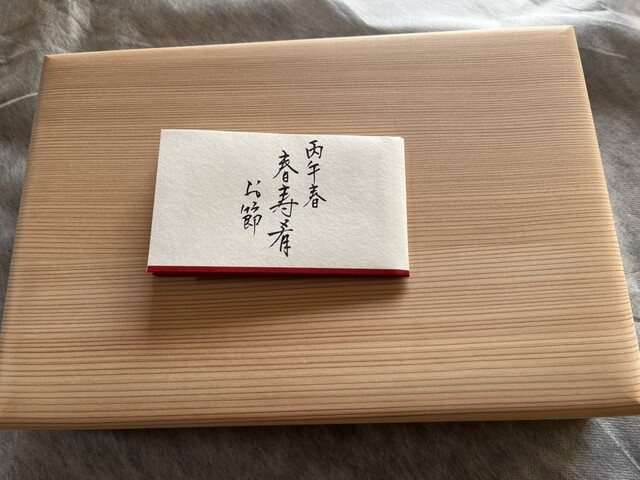 丙午春
春寿肴
お節